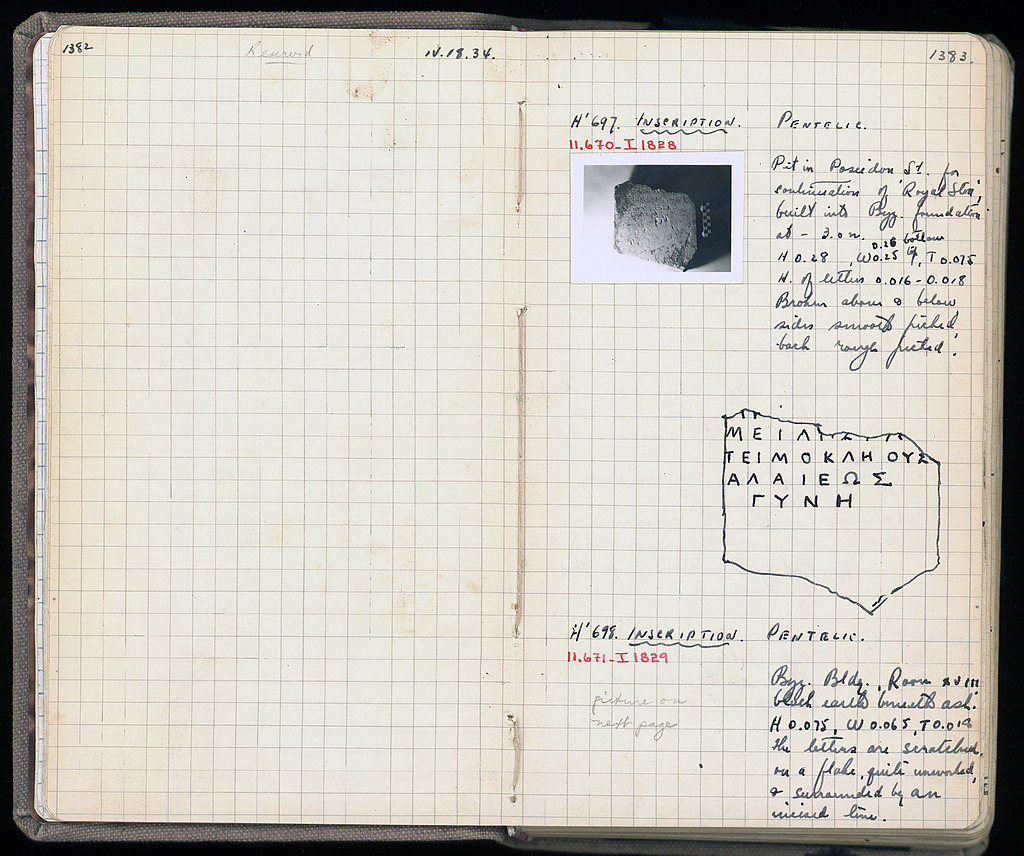 1382
IV.18.34.
1383.
H' 697. INSCRIPTION. PENTELIC.
11.670-I 1828
Pit in Poseidon St. for
continuation of 'Royal Stoa',
built into Byz. foundation
at - 3.0 m.
0.26 bottom
H 0.28, W 0.25 top, T 0.075
H. of letters 0.016-0.018
Broken above & below
sides smooth picked
back rough picked.
ΜΕΙΛ
ΤΕΙΜΟΚΛΗΟΥΣ
ΑΛΑΙΕΩΣ
ΓΥΝΗ
H' 698. INSCRIPTION. PENTELIC.
11.671-I 1829
picture on
next page
Byz. Bldg., Room XVIII
black earth beneath ash.
H 0.075, W 0.065, T 0.018
The letters are scratched
on a flake, quite unworked,
& surrounded by an
incised line.